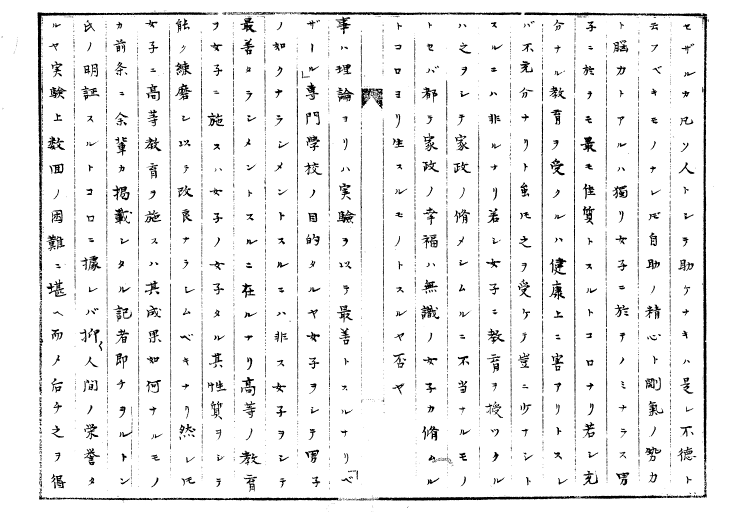 セザルカ凡ソ人トシテ助ケナキハ是レ不徳ト
云フベキモノナレ𪜈自助ノ精心ト剛気ノ勢力
ト脳力トアルハ獨リ女子ニ於テノミナラス男
子ニ於テモ最モ佳質トスルトコロナリ若シ充
分ナル教育ヲ受クルハ健康上ニ害アリトスレ
バ不充分ナリト虽𪜈之ヲ受ケテ豈ニ少ナシト
スルニハ非ルナリ若シ女子ニ教育ヲ授ツクル
ハ之ヲシテ家政ノ脩メシムルニ不当ナルモノ
トセバ都テ家政ノ幸福ハ無識ノ女子カ脩ムル
トコロヨリ生スルモノトスルヤ否ヤ
事ハ理論ヨリハ実驗ヲ以テ最善トスルナリ「ベ
ザール」専門学校ノ目的タルヤ女子ヲシテ男子
ノ如クナラシメントスルニハ非ス女子ヲシテ
最善タラシメントスルニ在ルナリ高等ノ教育
ヲ女子ニ施スハ女子ノ女子タル其性質ヲシテ
能ク練磨シ以テ改良ナラシムベキナリ然レ𪜈
女子ニ高等教育ヲ施スハ其成果如何ナルモノ
カ前条ニ余輩カ掲載シタル記者即チヲルトン
氏ノ明証スルトコロニ據レバ抑〻人間ノ栄誉タ
ルヤ実験上数回ノ困難ニ堪ヘ而メ后チ之ヲ得